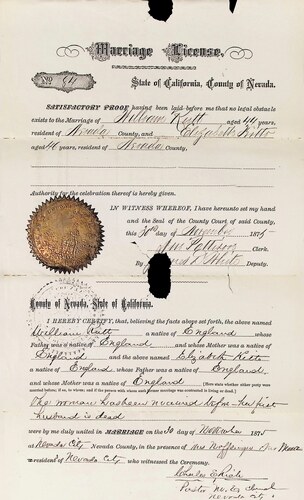 Marriage License.
No. 94
State of California, County of Nevada.
SATISFACTORY PROOF having been laid before me that no legal obstacle
exists to the Marriage of William Kitt aged 44
resident of Nevada County, and Elizabeth Kitto
aged 40 years, resident of Nevada County.
Authority for the celebration thereof is hereby given.
IN WITNESS WHEREOF, I have hereunto set my hand
and the Seal of the County Court, of said County,
this 30th day of November 1875
Clerk.
By Deputy.
County of Nevada, State of California.
I HEREBY CERTIFY, that, believing the facts above set forth, the above named
William Kitt a native of England, whose
Father was a native of England and whose Mother was a native of
England and the above named Elizabeth Kitto
a native of England, whose Father was a native of England,
and whose Mother was a native of England
The woman has been married before her first
husband is dead
were by me duly united in MARRIAGE on the day of 1875
at Nevada City Nevada County, in the presence of Mrs
resident of Nevada City who witnessed the Ceremony.
Pastor
Nevada City